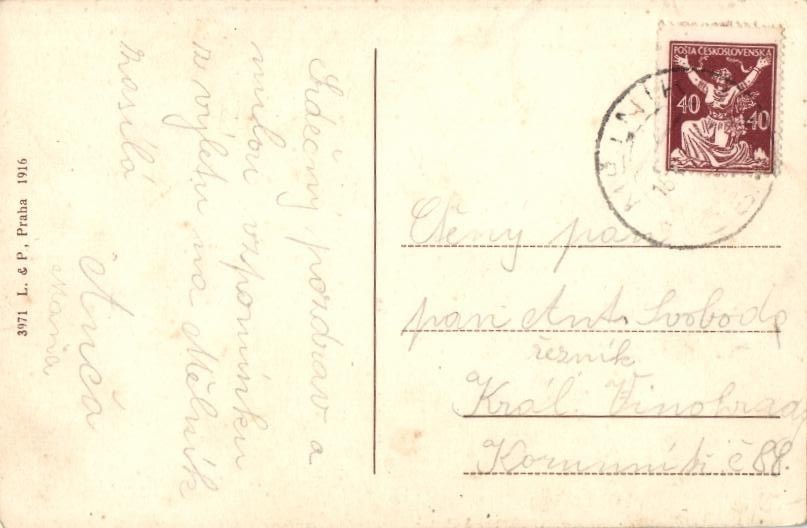 Srdečný pozdrav a
milou vzpomínku
z výletu na Mělník
zasílá
Anča
3971 L. & P., Praha 1916
POŠTA ČESKOSLOVENSKÁ
40 40
Ctěný pan
pan Ant. Svoboda
řezník
Král. Vinohrad
Korunní tř č 88.